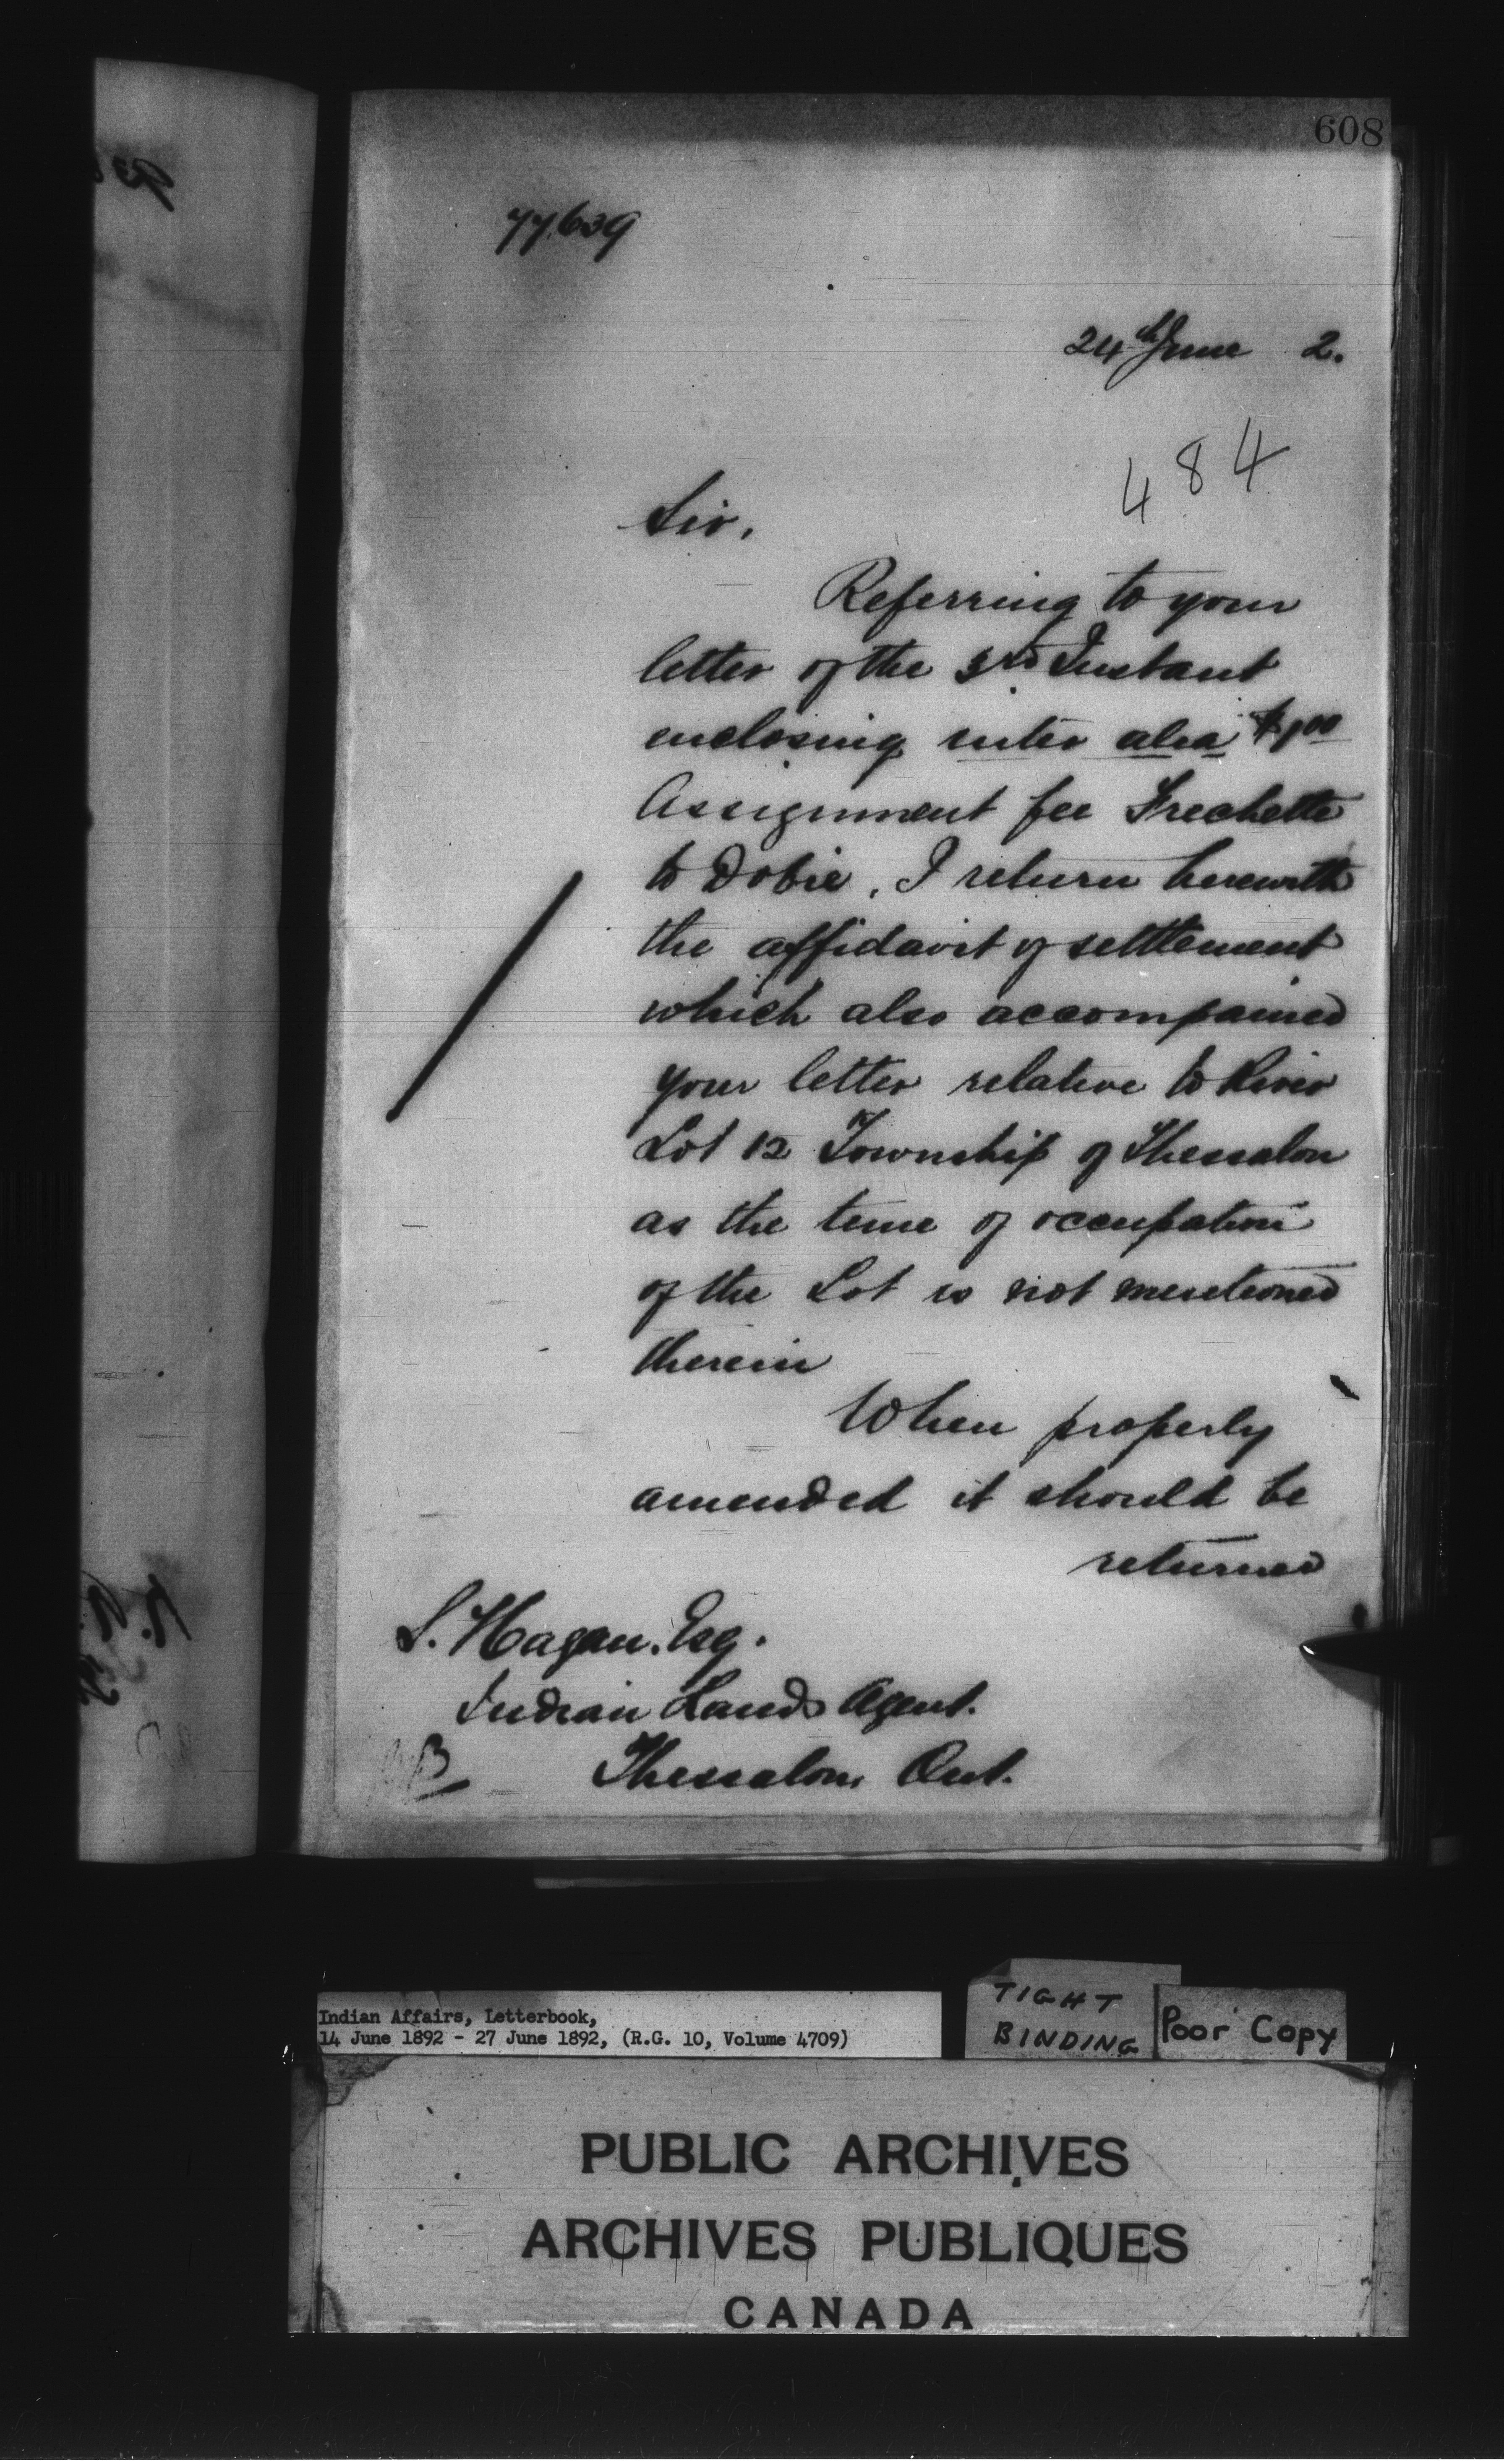 608
77.639
24th June 2.
484
Sir,
Referring to your
letter of the 3rd Instant
enclosing inter alia $1.00
Assignment fee Frechette
to Dobie, I return herewith
the affidavit of settlement
which also accompained
your letter relative to River
Lot 12 Township of Thessalon
as the time of occupation
of the Lot is not mentioned
therein
When properly
amended it should be
returned
S. Hagan. Esq.
Indian Lands Agent.
Thessalon, Ont.
Indian Affairs, Letterbook,
14 June 1892 - 27 June 1892, (R.G. 10, Volume 4709)
TIGHT
BINDING
Poor Copy
PUBLIC ARCHIVES
ARCHIVES PUBLIQUES
CANADA